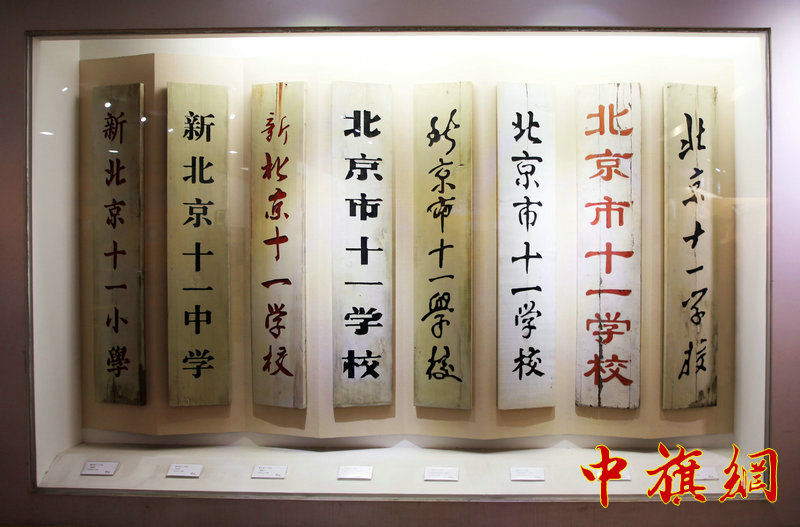 新北京十一小學
新北京十一中学
新北京十一学校
北京市十一学校
北京市十一學校
北京市十一学校
北京市十一学校
北京十一学校
中旗網